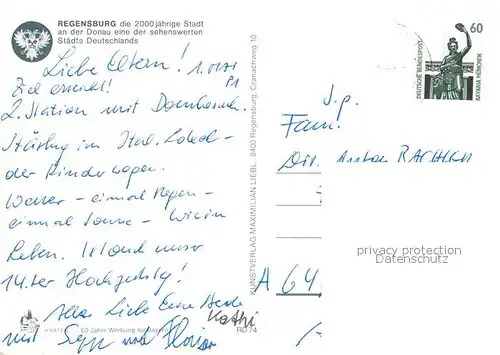 REGENSBURG die 2000jährige Stadt
an der Donau eine der sehenswerten
Städte Deutschlands
Liebe Eltern!
Ziel erreicht!
2. Station mit Dombesuch.
Stärkung im Ital. Lokal -
der Kinderwagen.
Wetter - einmal Regen -
einmal Sonne - wie im
Leben. Ist doch unser
14.ter Hochzeitstg!
Alles Liebe Eure
Kathi
mit Sepp und Florian
60 Jahre Werbung für Bayern
RD 74
KUNSTVERLAG MAXIMILIAN LIEBL, 8400 Regensburg,
60
DEUTSCHE BUNDESPOST
BAVARIA MÜNCHEN
Fam.
Dir. Anton
A 64
privacy protection
Datenschutz